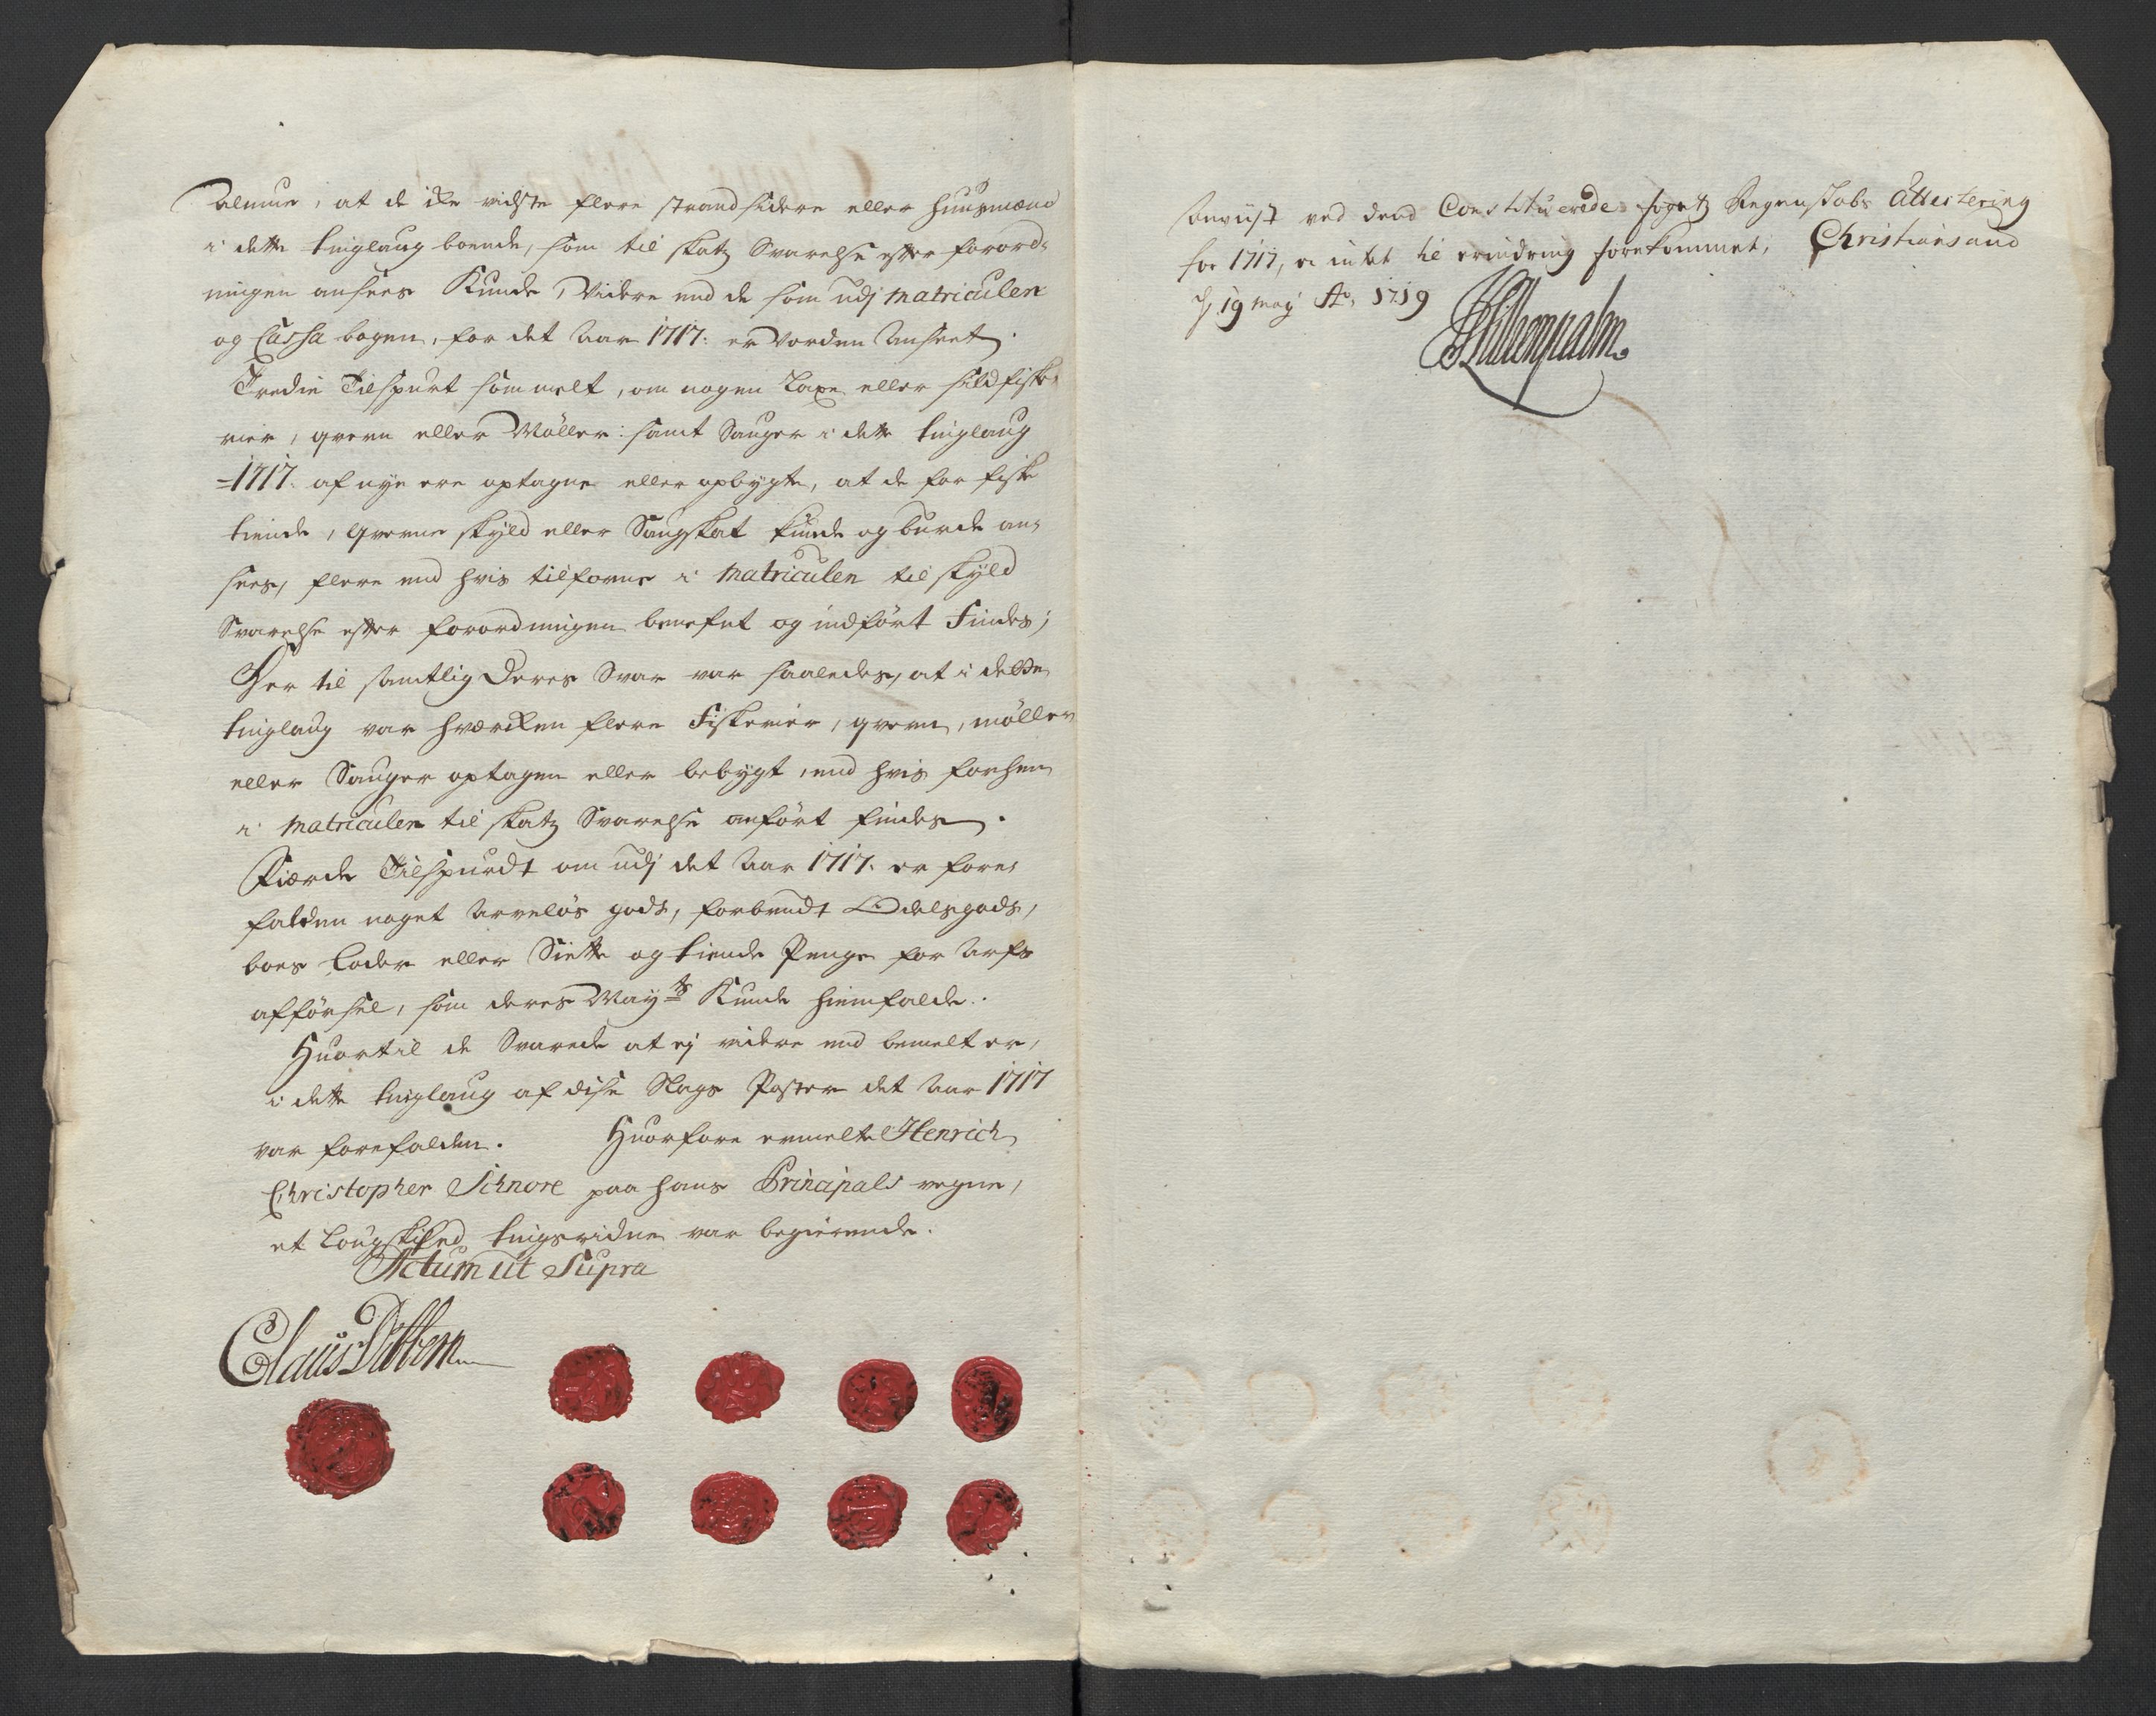 almue, at de iche vidste flere strandsidere eller huusmænd
i dette tinglaug boende, som til skatz Svarelse efter forord-
ningen ansees Kunde, Videre end de som udj Matriculen
og Cassa bogen, for det Aar 1717. er vorden Anseet.
Tredie Tilspurt som melt, om nogen Laxe eller sildfiske-
rier, qverne eller Møller: samt Sauger i dette tinglaug
1717. af nye ere optagne eller opbygte, at de for fiske
tiende, qverne skyld eller Saugskat kunde og burde an-
sees, flere end hvis tilforne i Matriculen til skyld
Svarelse efter forordningen benefnt og indført Findes;
Her til samtlig Deres Svar var saaledes, at i dette
tinglaug var hvercken flere Fiskerier, qverne, møller
eller Sauger optagen eller bebygt, end hvis forhen
i Matriculen til skatz Svarelse anført findes.
Fierde Tilspurdt om udj det Aar 1717. er fore-
falden noget Arveløs gods, forbrudt Odelsgods,
boes Loder eller Siette og tiende Penge for Arfs
afførsel, som deres Mayts Kunde hiemfalde.
Huortil de Svarede at ej videre end bemelt er,
i dette tinglaug af dise Slags Poster det Aar 1717
var forefalden. Huorfore ermelte Henrich
Christopher Schnore paa hans Principals vegne,
et Lougskiked tingsvidne var begierende.
Actum ut Supra
Claus Dibbern
ved dend Constituerede fogetz Regenskabs Attestering
for 1717, er intet til erindring forekommet, Christiansand
d 19 Maij Ao 1719